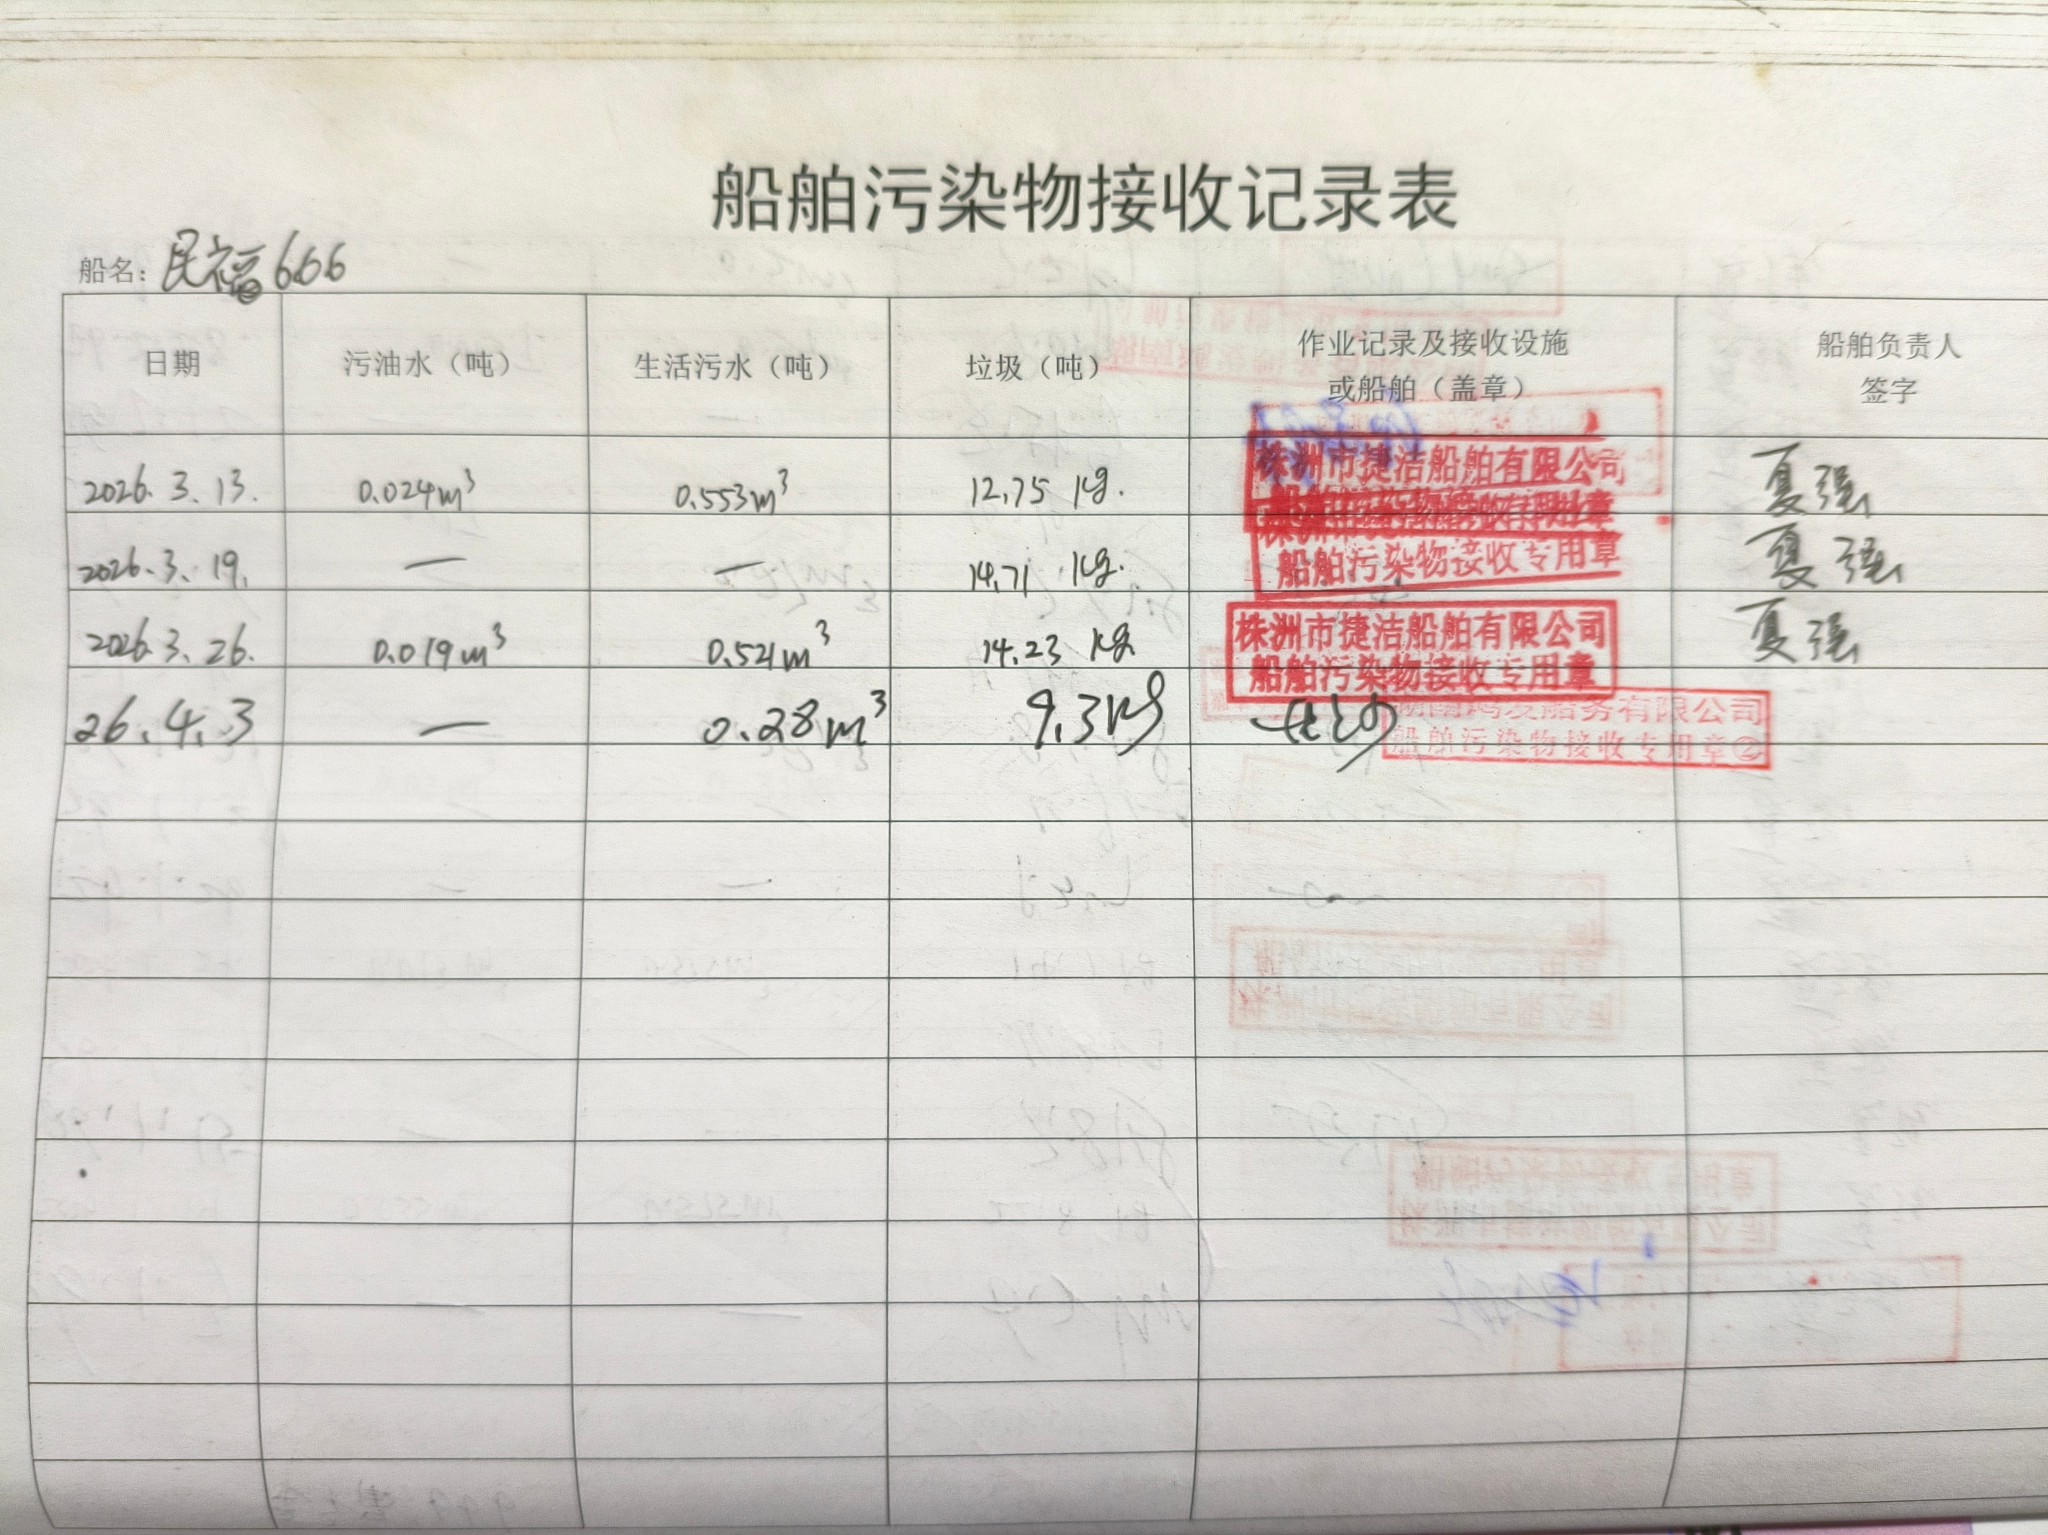 船舶污染物接收记录表
船名：民福666
日期 污油水（吨） 生活污水（吨） 垃圾（吨） 作业记录及接收设施或船舶（盖章） 船舶负责人签字
2026.3.13. 0.024m³ 0.553m³ 12.75 kg. 夏强
株洲市捷洁船舶有限公司
2026.3.19. — — 14.71 kg. 夏强
船舶污染物接收专用章
2026.3.26. 0.019m³ 0.521m³ 14.23 kg. 夏强
株洲市捷洁船舶有限公司
船舶污染物接收专用章
26.4.3 — 0.28m³ 9.3kg 长沙
船务有限公司
船舶污染物接收专用章②